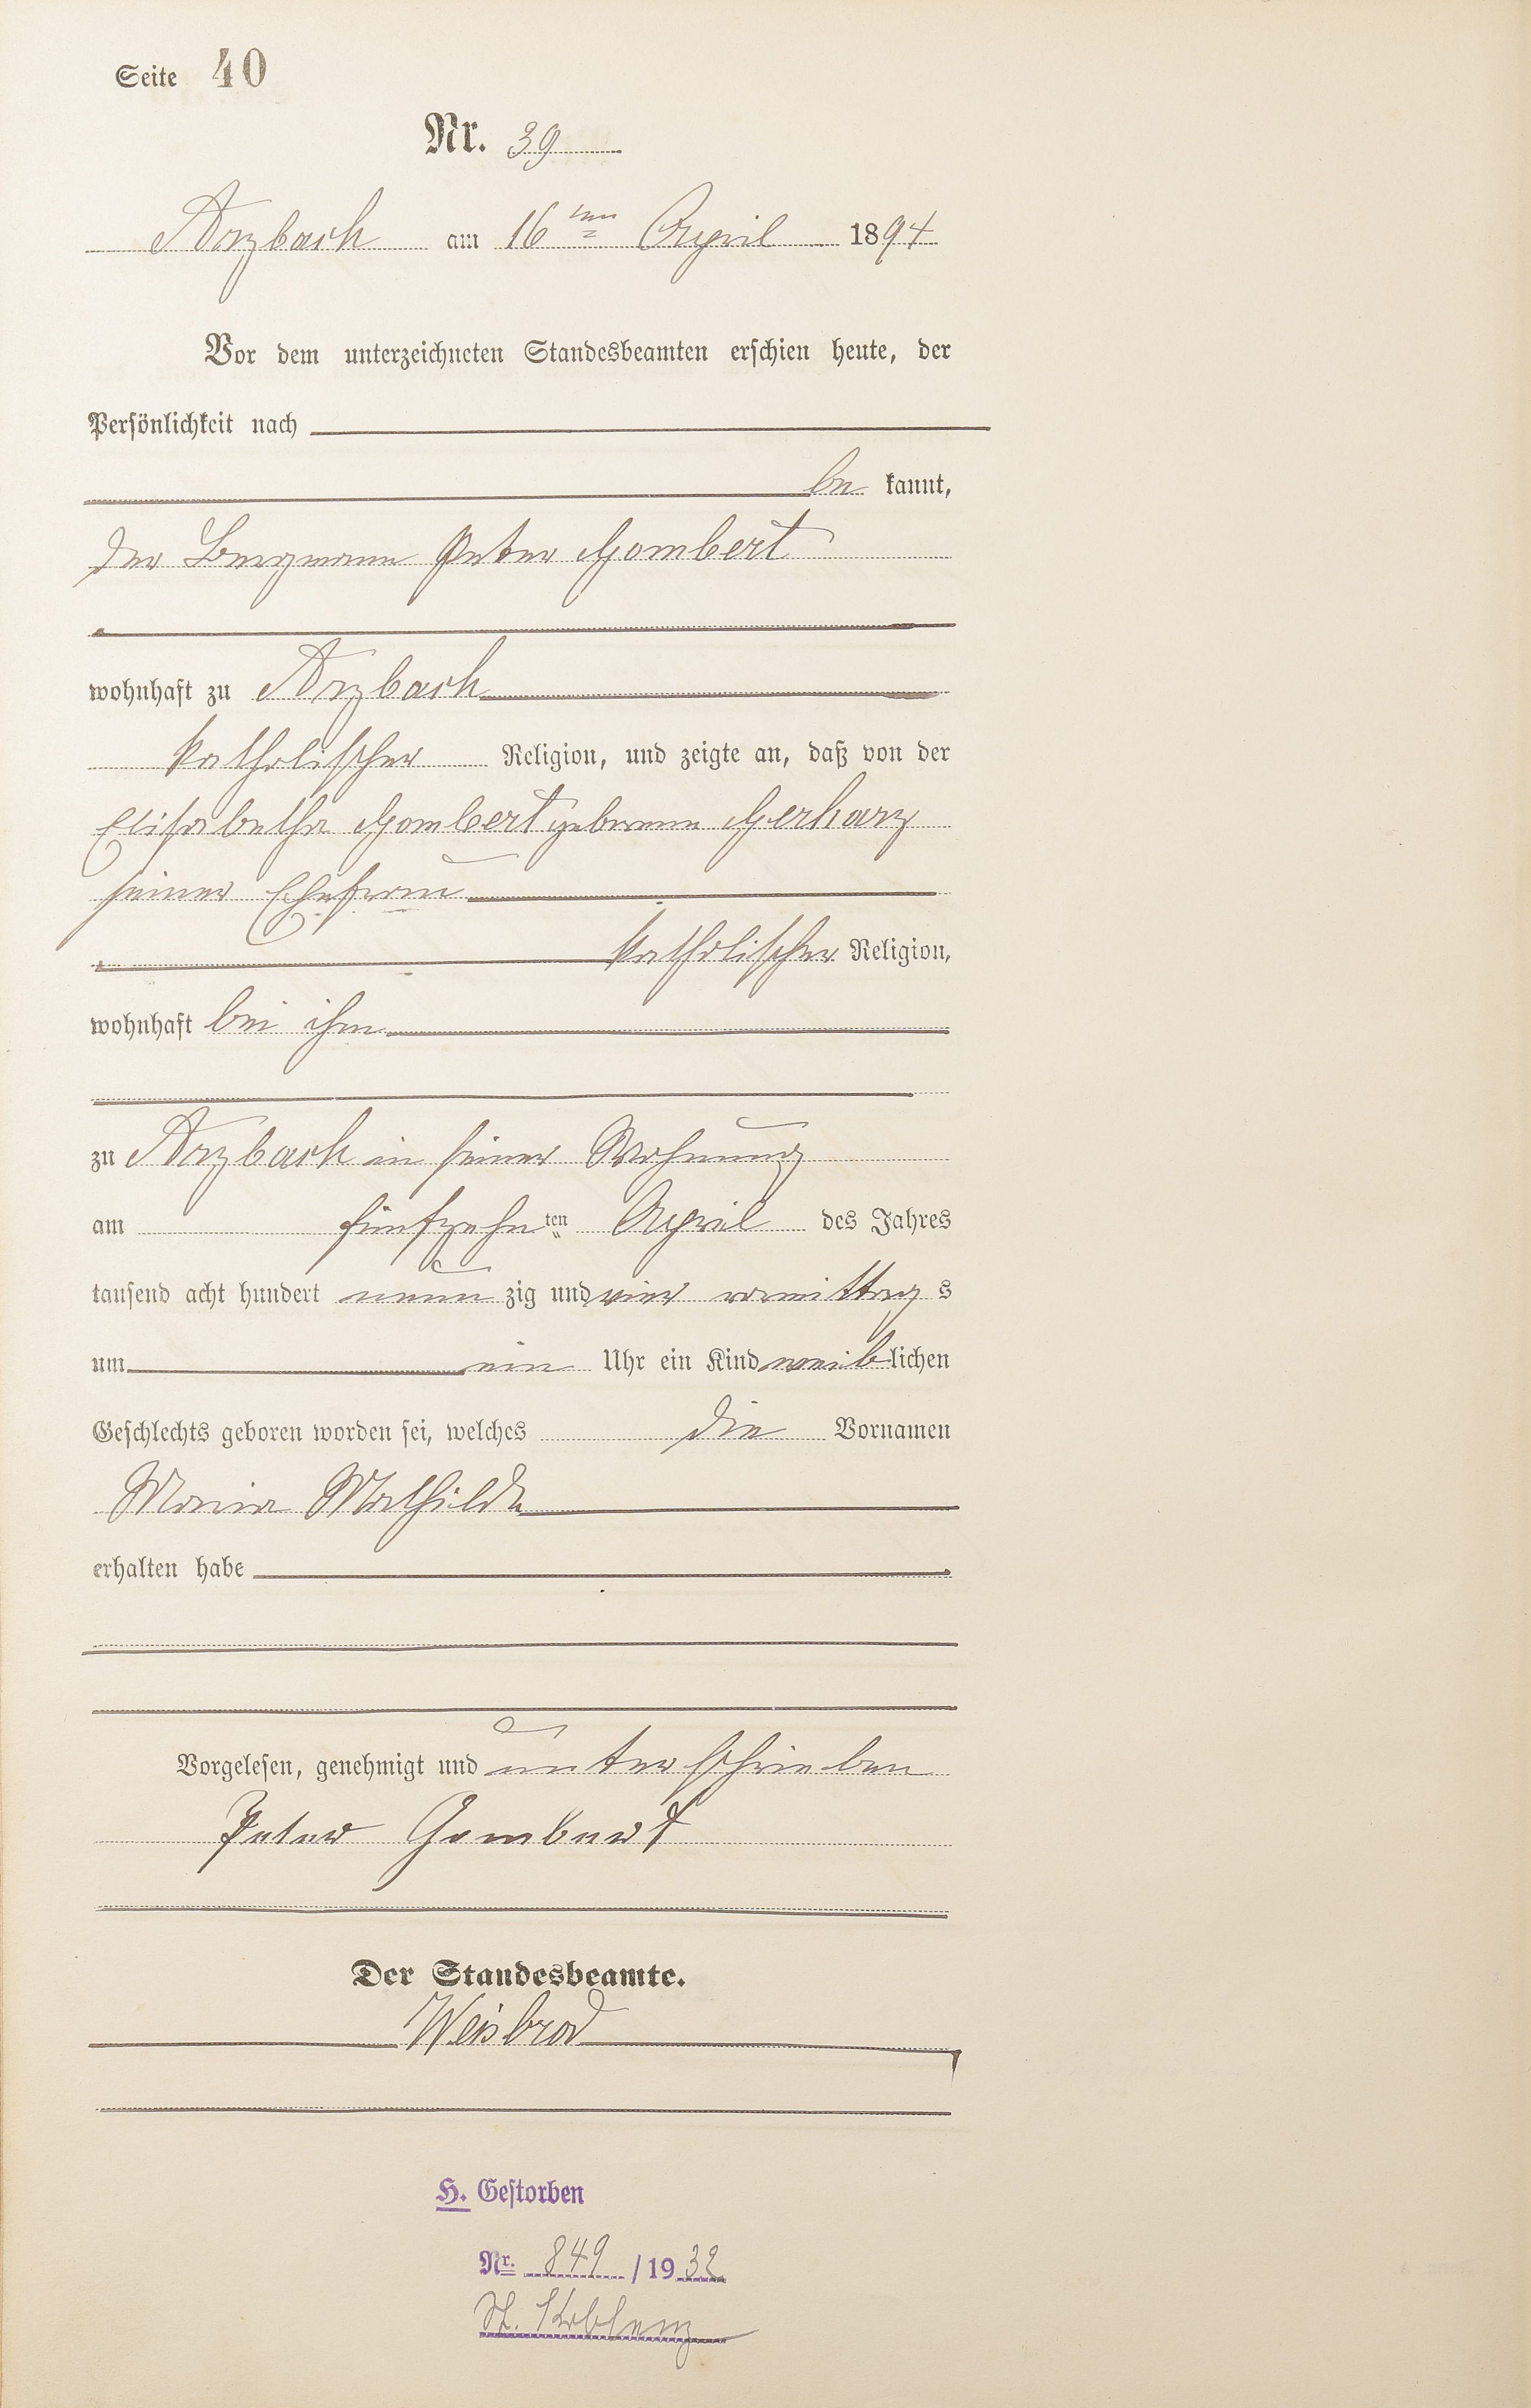 Seite 40
Nr. 39
Arzbach am 16ten April 1894
Vor dem unterzeichneten Standesbeamten erschien heute, der
Persönlichkeit nach
be kannt,
der Bergmann Peter Gombert
wohnhaft zu Arzbach
katholischer Religion, und zeigte an, daß von der
Elisabetha Gombert geborene Gerharz
seiner Ehefrau
katholischer Religion,
wohnhaft bei ihm
zu Arzbach in seiner Wohnung
am fünfzehnten April des Jahres
tausend acht hundert neun zig und vier vormittag s
um ein Uhr ein Kind weiblichen
Geschlechts geboren worden sei, welches die Vornamen
Maria Mathilde
erhalten habe
Vorgelesen, genehmigt und unterschrieben
Peter Gombert
Der Standesbeamte.
Weisbrod
H. Gestorben
Nr. 849 / 1932
St. Koblenz